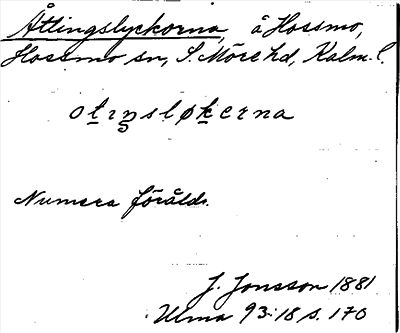 Åtlingslyckorna, å Hossmo,
Hossmo sn, S. Möre hd, Kalm. l.
otıŋsløkerna
Numera föråldr.
J. Jonsson 1881
Ulma 93:18 s. 170